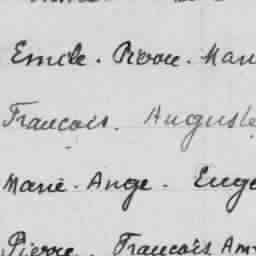 Emile. Pierre. Mari
Francois. Auguste
Marie. Ange. Euge
Pierre. Francois Am